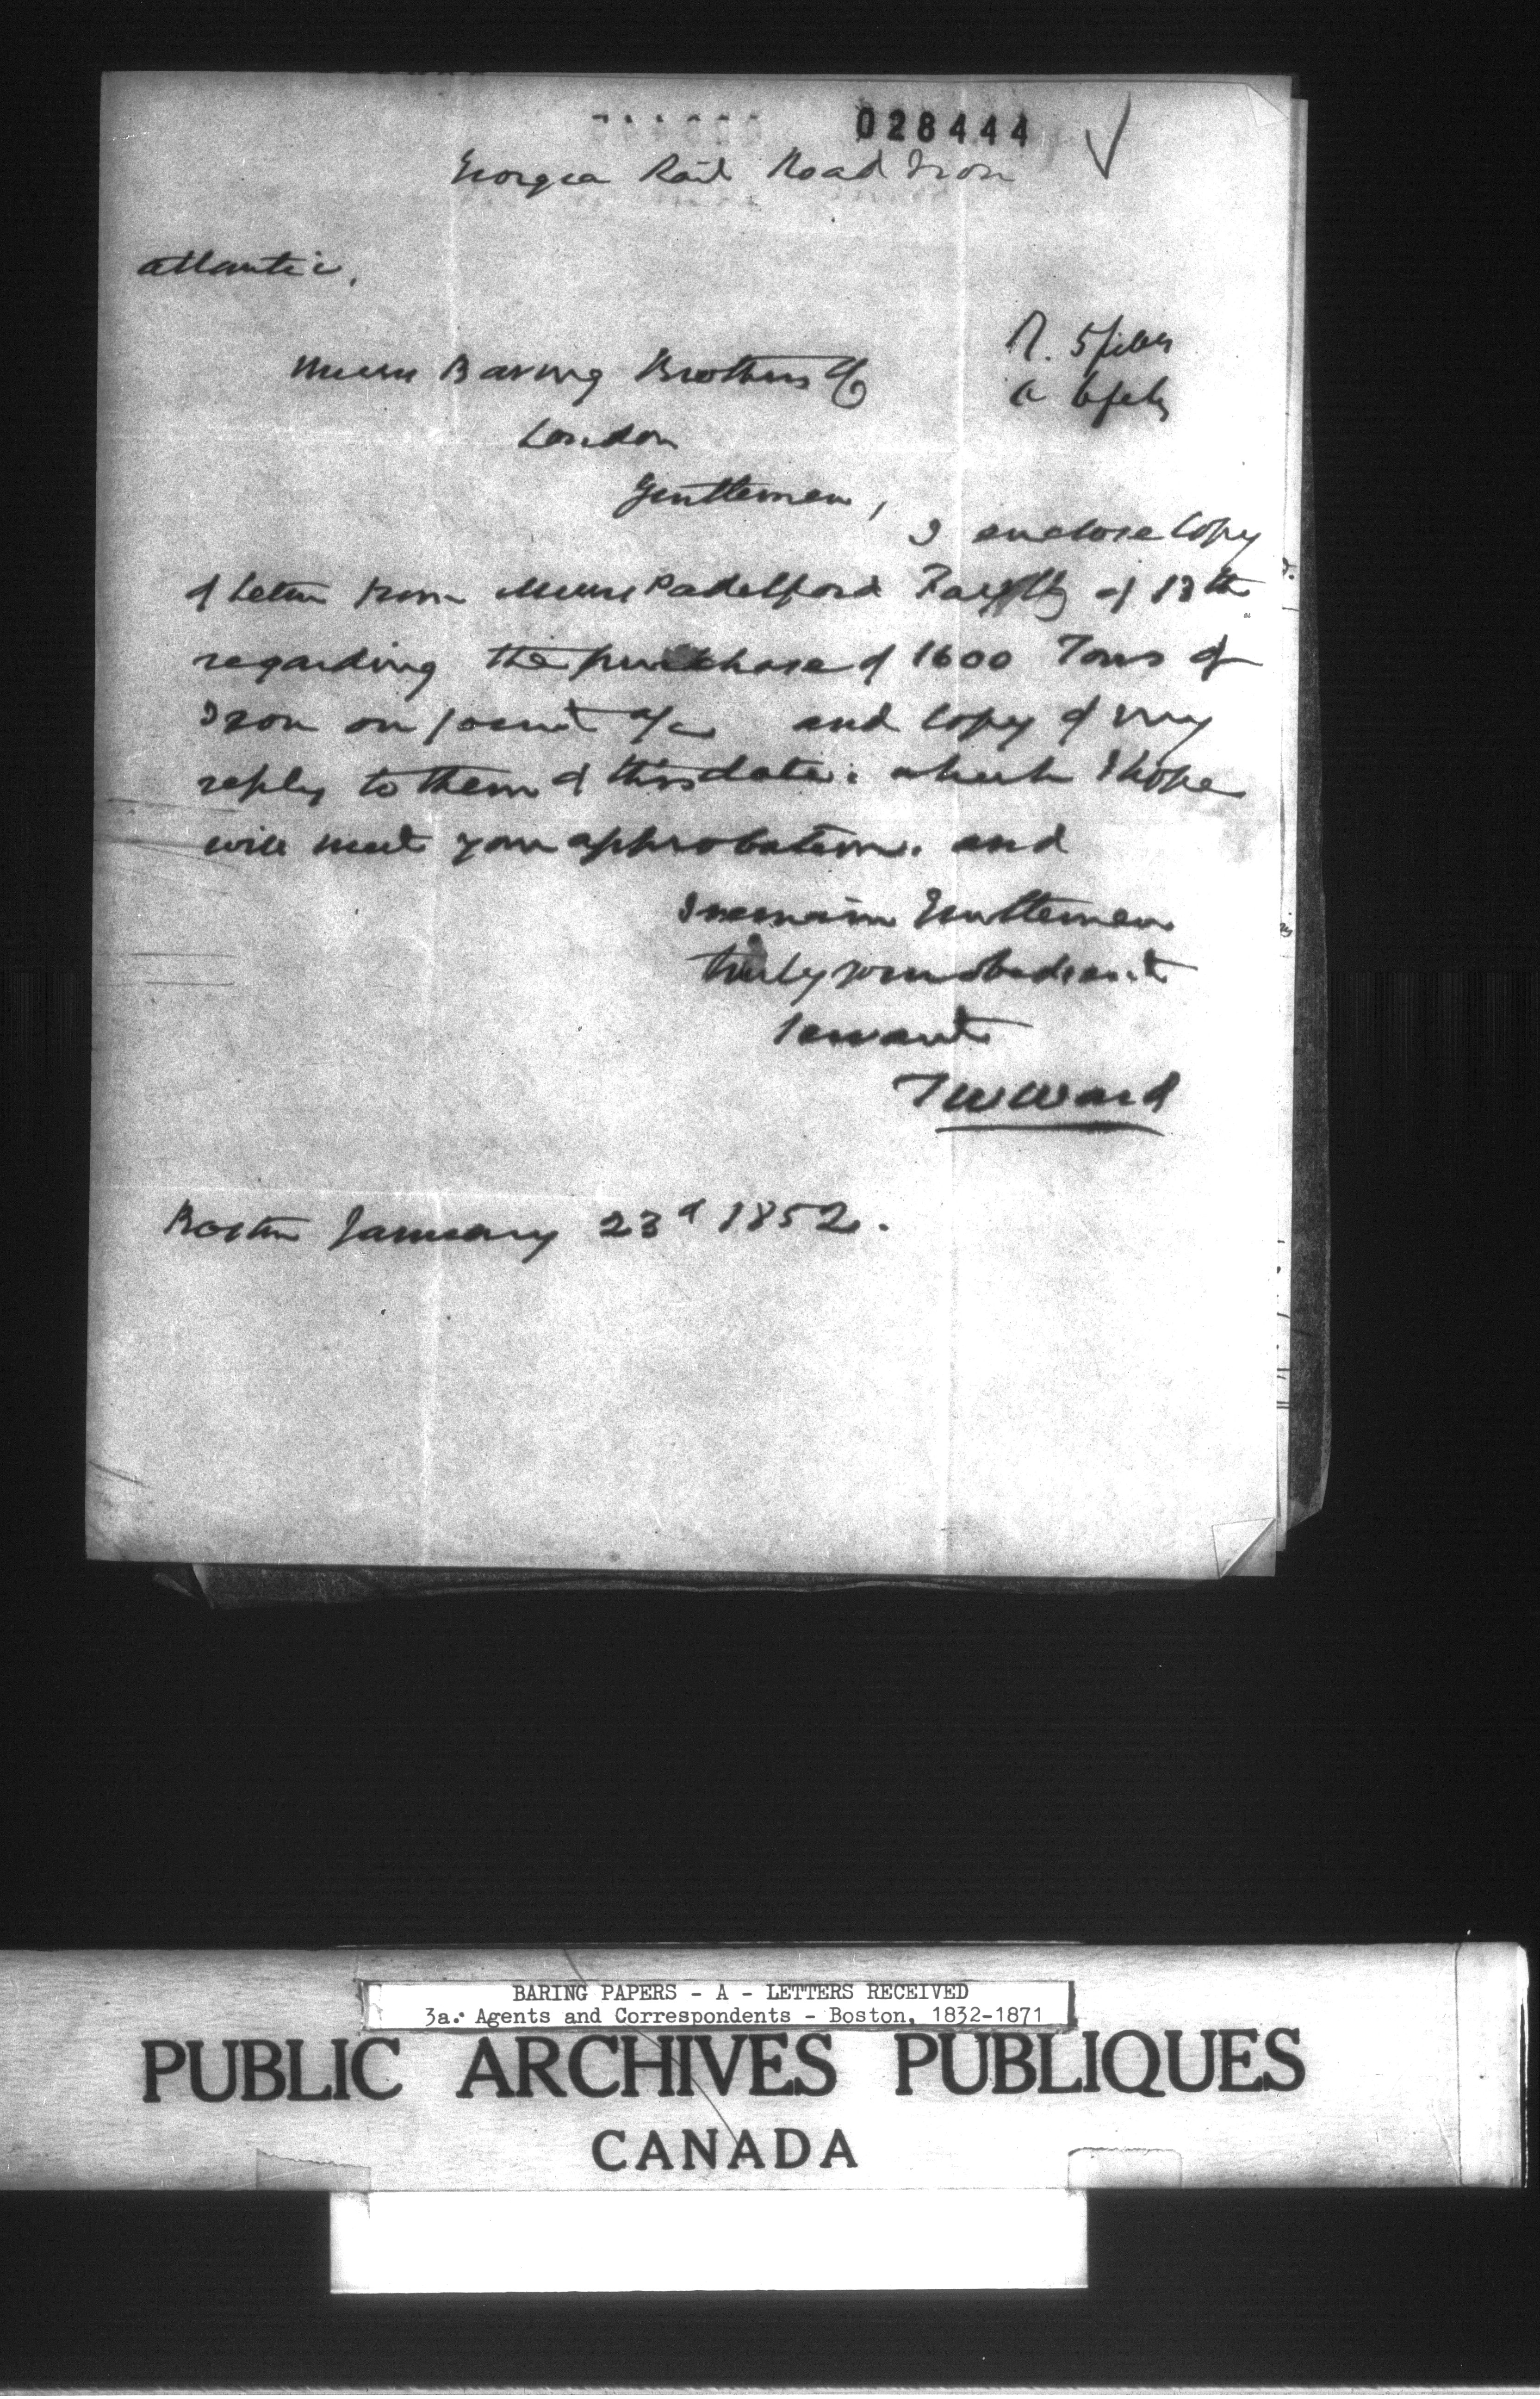 028444
Georgia Rail Road Iron
Atlantic.
R. 5 feby
a 6 feby
Messrs Baring Brothers & Co
London
Gentlemen,
I enclose Copy
of letter from Messrs Padelford Fay & Co of 13th
regarding the purchase of 1600 Tons of
Iron on joint a/c and copy of my
reply to them of this date: which I hope
will meet your approbation. and
I remain Gentlemen
truly your obedient
servant
T W Ward
Boston January 23d 1852.
BARING PAPERS - A - LETTERS RECEIVED
3a. Agents and Correspondents - Boston, 1832-1871
PUBLIC ARCHIVES PUBLIQUES
CANADA